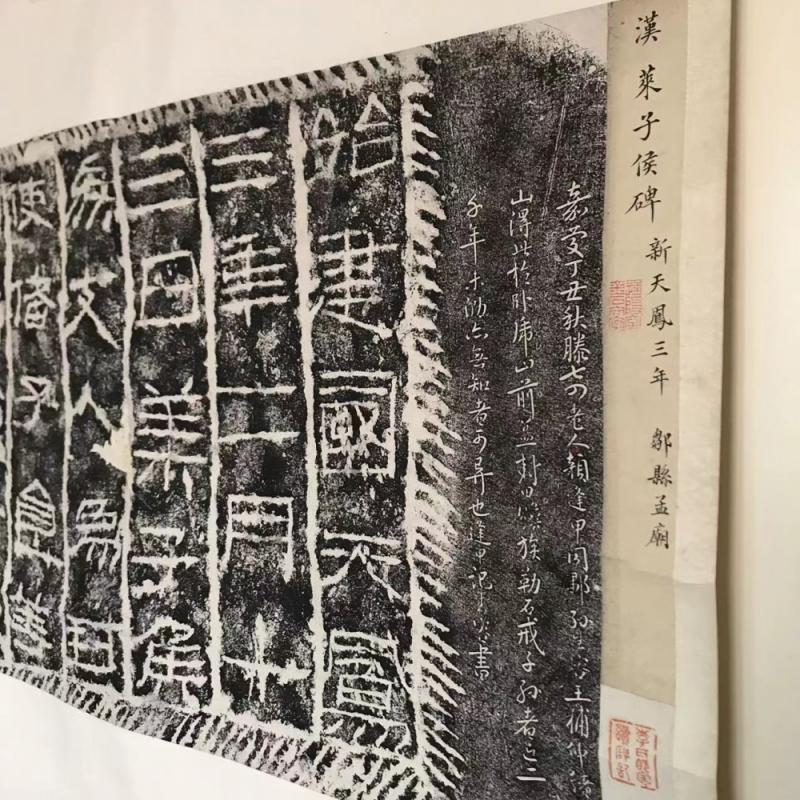 漢萊子侯碑 新天鳳三年 鄒縣孟廟
嘉慶丁丑秋滕七四老人顏逢甲同鄒孫生容王補仲緒
山得此於臥虎山前蓋封田贍族勒石戒子孫者近二
千年未泐亦無知者可異也逢甲記生容書
始建國天鳳
三年二月十
三日萊子侯
為支人為封
使偖子食等